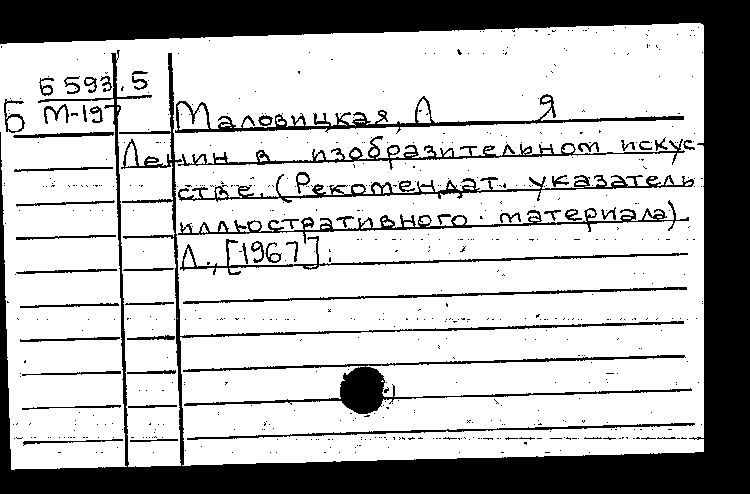 Б 593.5
Б М-197
Маловицкая, Л Я
Ленин в изобразительном искус-
стве. (Рекомендат. указатель
иллюстративного материала)
Л., [1967].